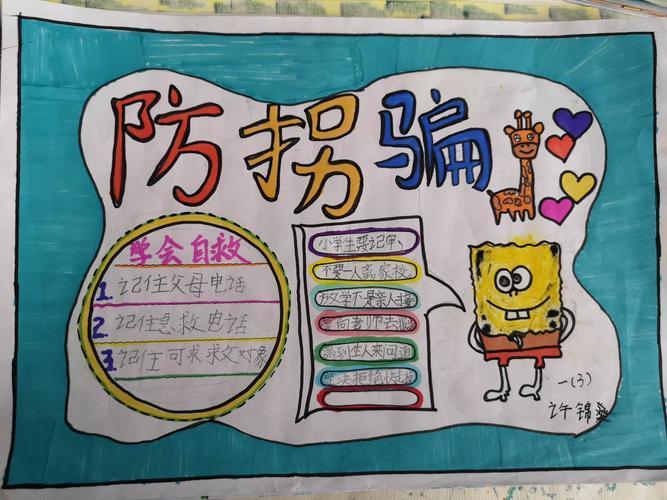 防拐骗
学会自救
1. 记住父母电话
2. 记住急救电话
3. 记住可求救对象
小学生要记牢,
不要一人离家校。
放学不是亲人接
向老师去
遇到生人来问道
坚决拒绝快走
一(3)
许锦